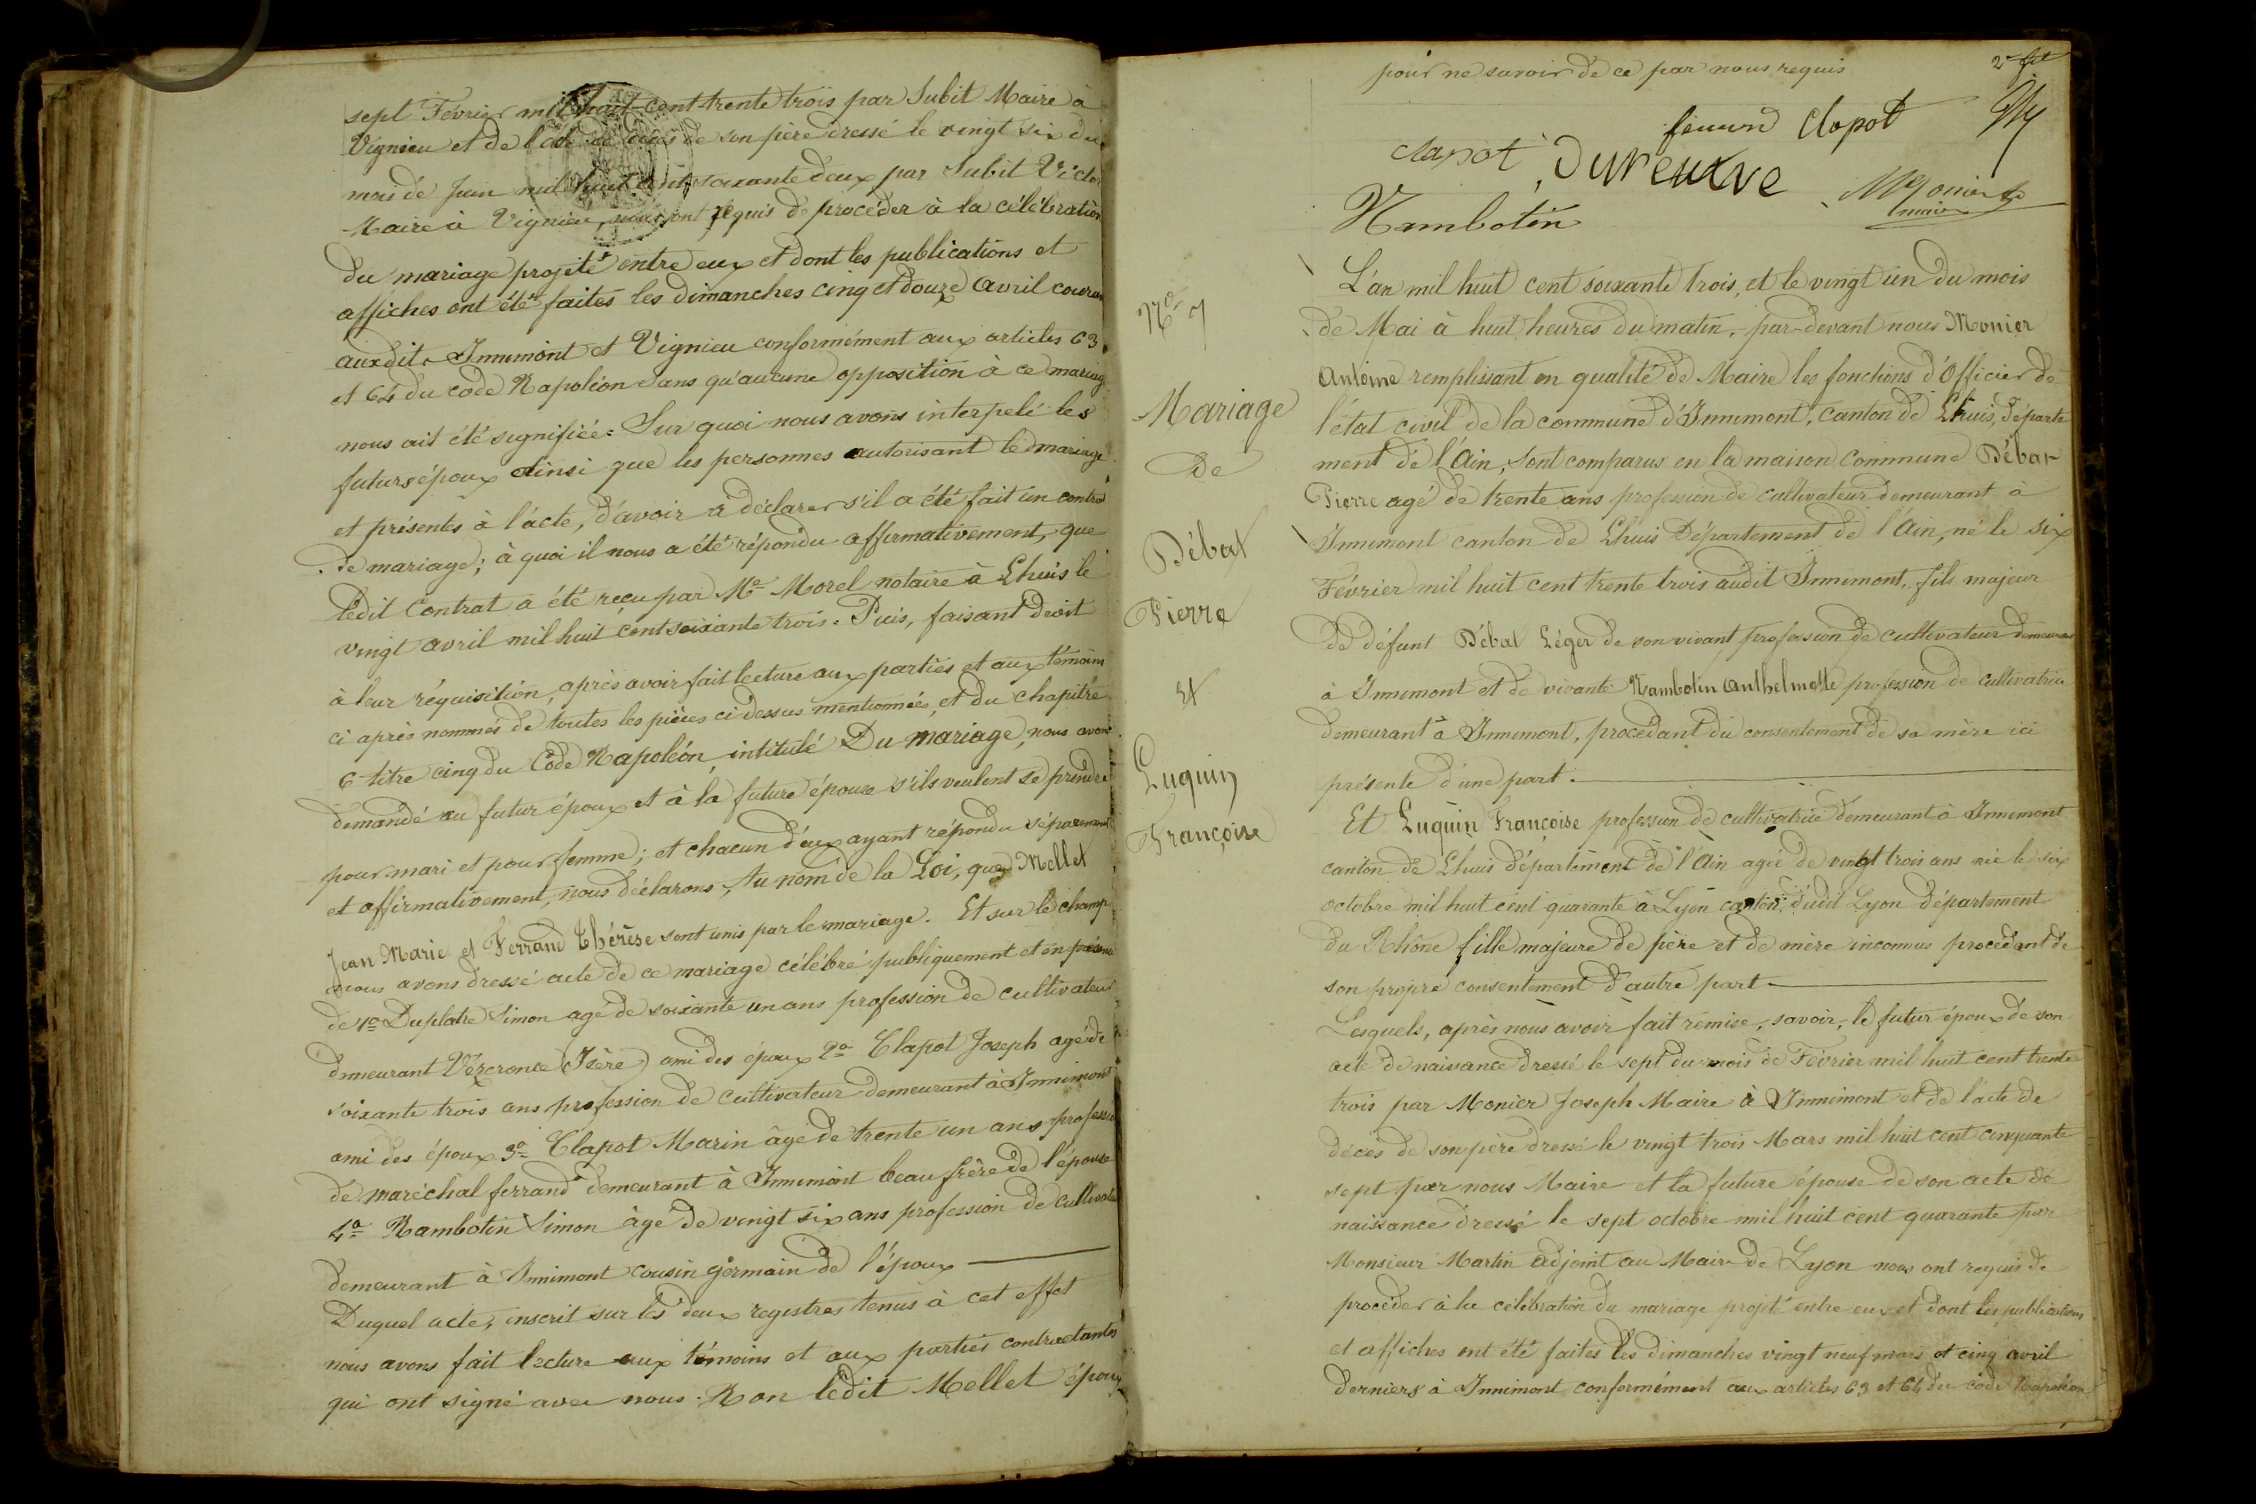 sept Février mil huit cent trente trois par Subit Maire à
Vignieu et de l'acte de décès de son père dressé le vingt six du
mois de Juin mil huit cent soixante deux par Subit Victor
Maire à Vignieu, nous ont requis de procéder à la célébration
du mariage projeté entre eux et dont les publications et
affiches ont été faites les dimanches cinq et douze avril courant
auxdits Innimont et Vignieu conformément aux articles 63
et 64 du code Napoléon sans qu'aucune opposition à ce mariage
nous ait été signifiée. Sur quoi nous avons interpelé les
futurs époux ainsi que les personnes autorisant le mariage
et présentes à l'acte, d'avoir à déclarer s'il a été fait un contrat
de mariage; à quoi il nous a été répondu affirmativement, que
ledit Contrat a été reçu par Me Morel notaire à Lhuis le
vingt avril mil huit cent soixante trois. Puis, faisant droit
à leur réquisition, après avoir fait lecture aux parties et aux témoins
ci après nommés de toutes les pièces ci dessus mentionnées, et du chapitre
6 titre cinq du Code Napoléon, intitulé Du mariage, nous avons
demandé au futur époux et à la future épouse s'ils veulent se prendre
pour mari et pour femme; et chacun d'eux ayant répondu séparément
et affirmativement, nous déclarons, Au nom de la Loi, que Mellet
Jean Marie et Ferrand Thérèse sont unis par le mariage. Et sur le champ
nous avons dressé acte de ce mariage célébré publiquement et en présence
de 1º Duplatre Simon agé de soixante un ans profession de cultivateur
demeurant Vézeronce (Isère) ami des époux 2º Clapot Joseph agé de
soixante trois ans profession de cultivateur demeurant à Innimont
ami des époux 3º Clapot Marin âgé de trente un ans profession
de maréchal ferrand demeurant à Innimont beau frère de l'épouse
4º Nambotin Simon âgé de vingt six ans profession de cultivateur
demeurant à Innimont cousin germain de l'époux
Duquel acte, inscrit sur les deux registres tenus à cet effet
nous avons fait lecture aux témoins et aux parties contractantes
qui ont signé avec nous. Non ledit Mellet époux
pour ne savoir de ce par nous requis
clapot
Clapot
Nambotin
Monier
maire
Nº 7
Mariage
de
Débat
Pierre
et
Luquin
Françoise
L'an mil huit cent soixante trois, et le vingt un du mois
de Mai à huit heures du matin, par-devant nous Monier
Antoine remplissant en qualité de Maire les fonctions d'Officier de
l'état civil de la commune d'Innimont, canton de Lhuis, départe
ment de l'Ain, sont comparus en la maison commune Débat
Pierre agé de trente ans profession de cultivateur demeurant à
Innimont canton de Lhuis Département de l'Ain, né le six
Février mil huit cent trente trois audit Innimont, fils majeur
de défunt Débat Léger de son vivant profession de cultivateur demeurant
à Innimont et de vivante Nambotin Anthelmette profession de cultivatrice
demeurant à Innimont, procédant du consentement de sa mère ici
présente d'une part.
Et Luquin Françoise profession de cultivatrice demeurant à Innimont
canton de Lhuis département de l'Ain agée de vingt trois ans née le six
octobre mil huit cent quarante à Lyon canton dudit Lyon département
du Rhône fille majeure de père et de mère inconnus procédant de
son propre consentement d'autre part
Lesquels, après nous avoir fait remise, savoir, le futur époux de son
acte de naissance dressé le sept du mois de Février mil huit cent trente
trois par Monier Joseph Maire à Innimont et de l'acte de
décès de son père dressé le vingt trois Mars mil huit cent cinquante
sept par nous Maire et la future épouse de son acte de
naissance dressé le sept octobre mil huit cent quarante par
Monsieur Martin adjoint au Maire de Lyon nous ont requis de
procéder à la célébration du mariage projeté entre eux et dont les publications
et affiches ont été faites les dimanches vingt neuf mars et cinq avril
derniers à Innimont conformément aux articles 63 et 64 du code Napoléon